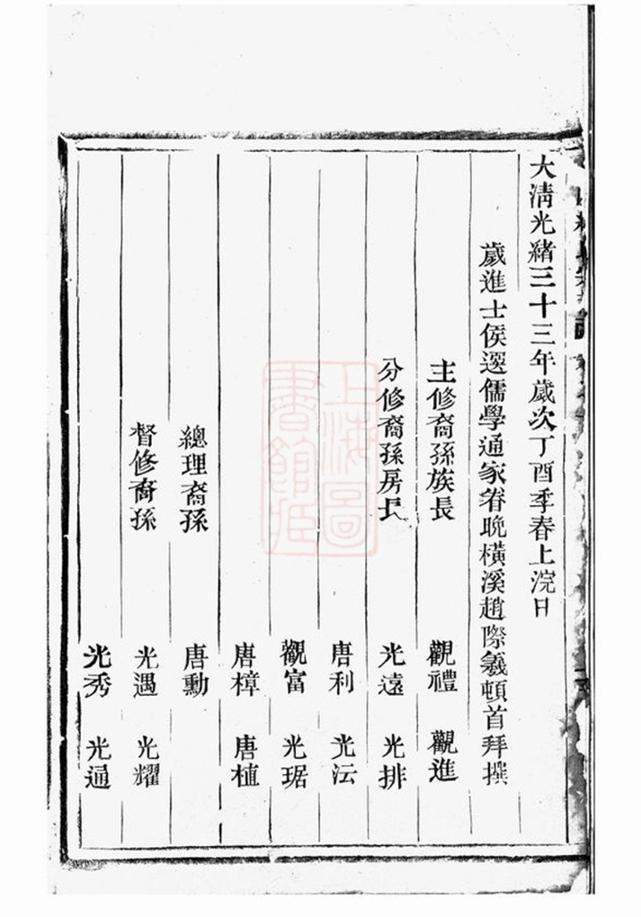 大淸光緒三十三年歲次丁酉季春上浣日
歲進士侯選儒學通家眷晚橫溪趙際羲頓首拜撰
主修裔孫族長 觀禮 觀進
分修裔孫房長 光遠 光排
唐利 光沄
觀富 光琚
唐樟 唐植
總理裔孫 唐勳
督修裔孫 光遇 光耀
光秀 光通
上海圖
書館藏